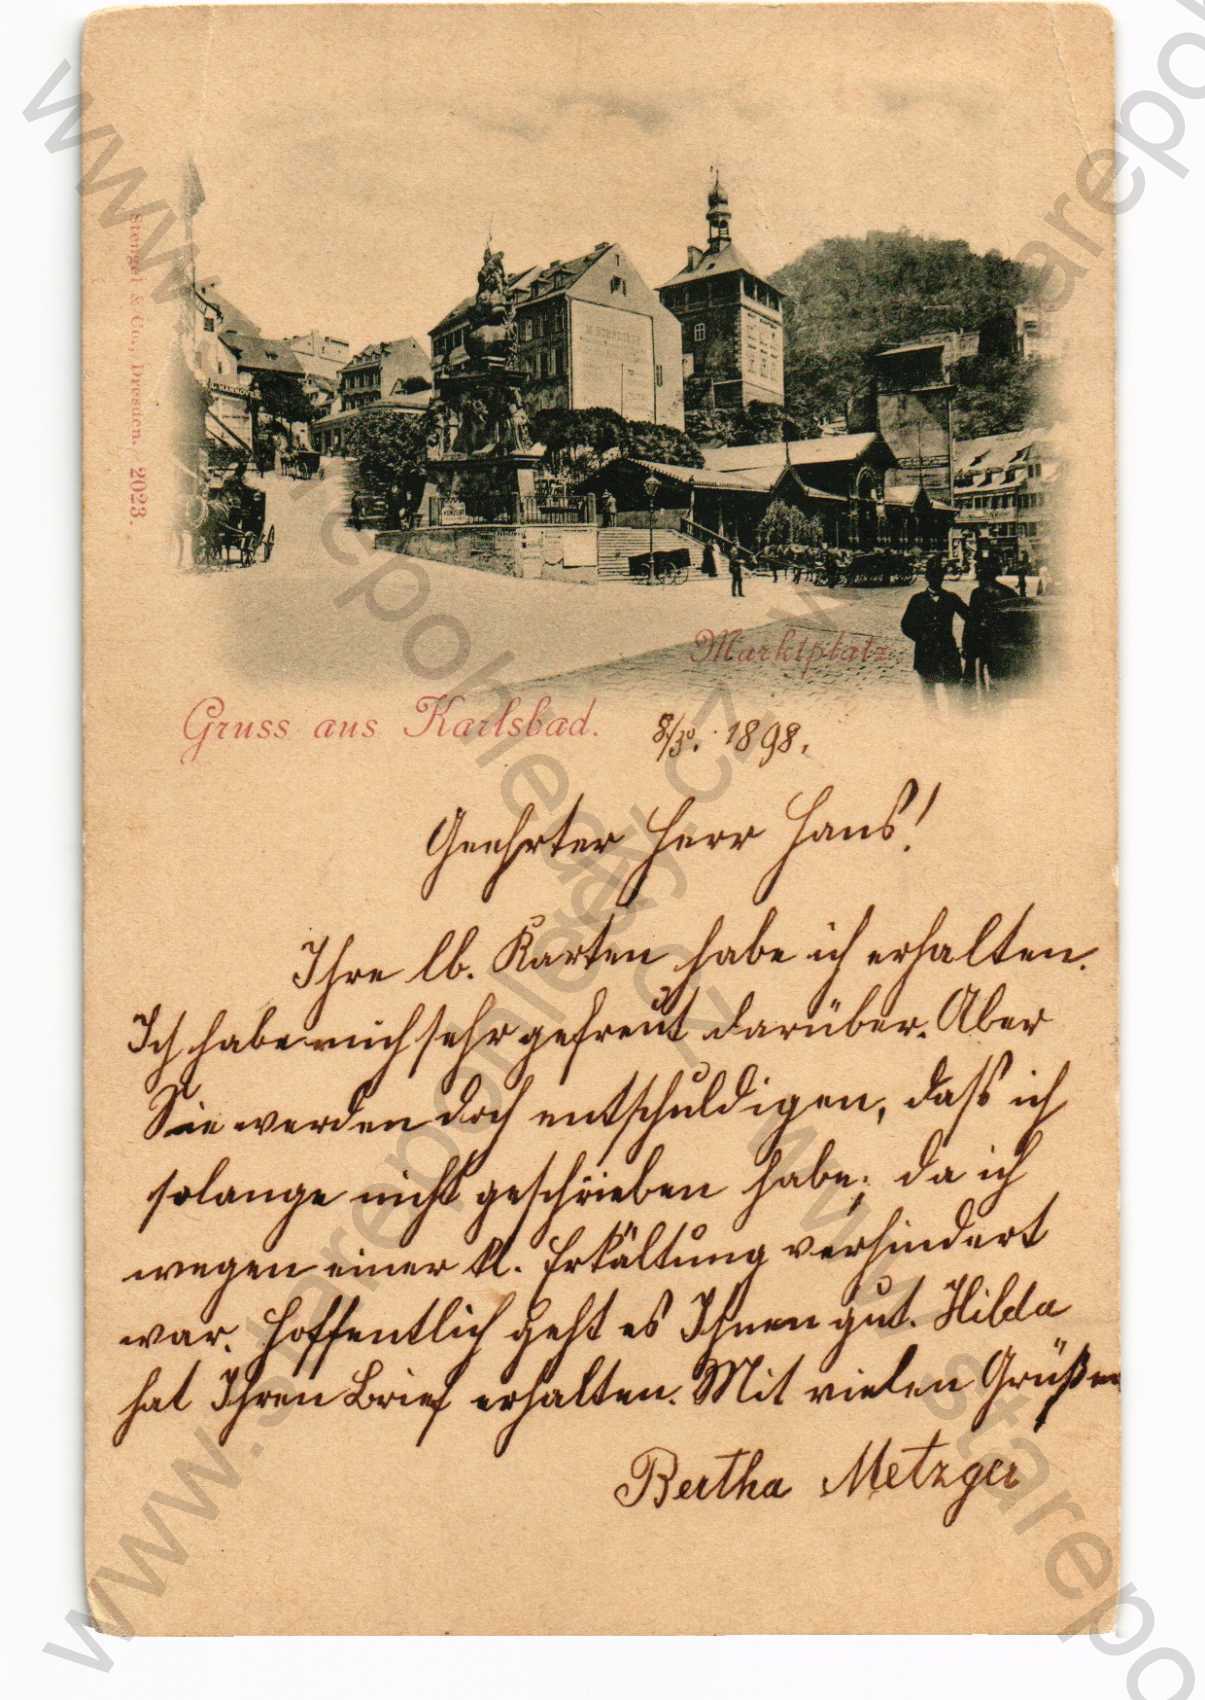 Stengel & Co., Dresden. 2023.
Marktplatz
Gruss aus Karlsbad.
1898.
Geehrter Herr Hans!
Ihre lb. Karten habe ich erhalten.
Ich habe mich sehr gefreut darüber. Aber
Sie werden doch entschuldigen, dass ich
solange nicht geschrieben habe. da ich
wegen einer kl. Erkältung verhindert
war. Hoffentlich geht es Ihnen gut. Hilda
hat Ihren Brief erhalten. Mit vielen Grüßen
Bertha Metzger
www.starepohledy.cz
www.starepohledy.cz